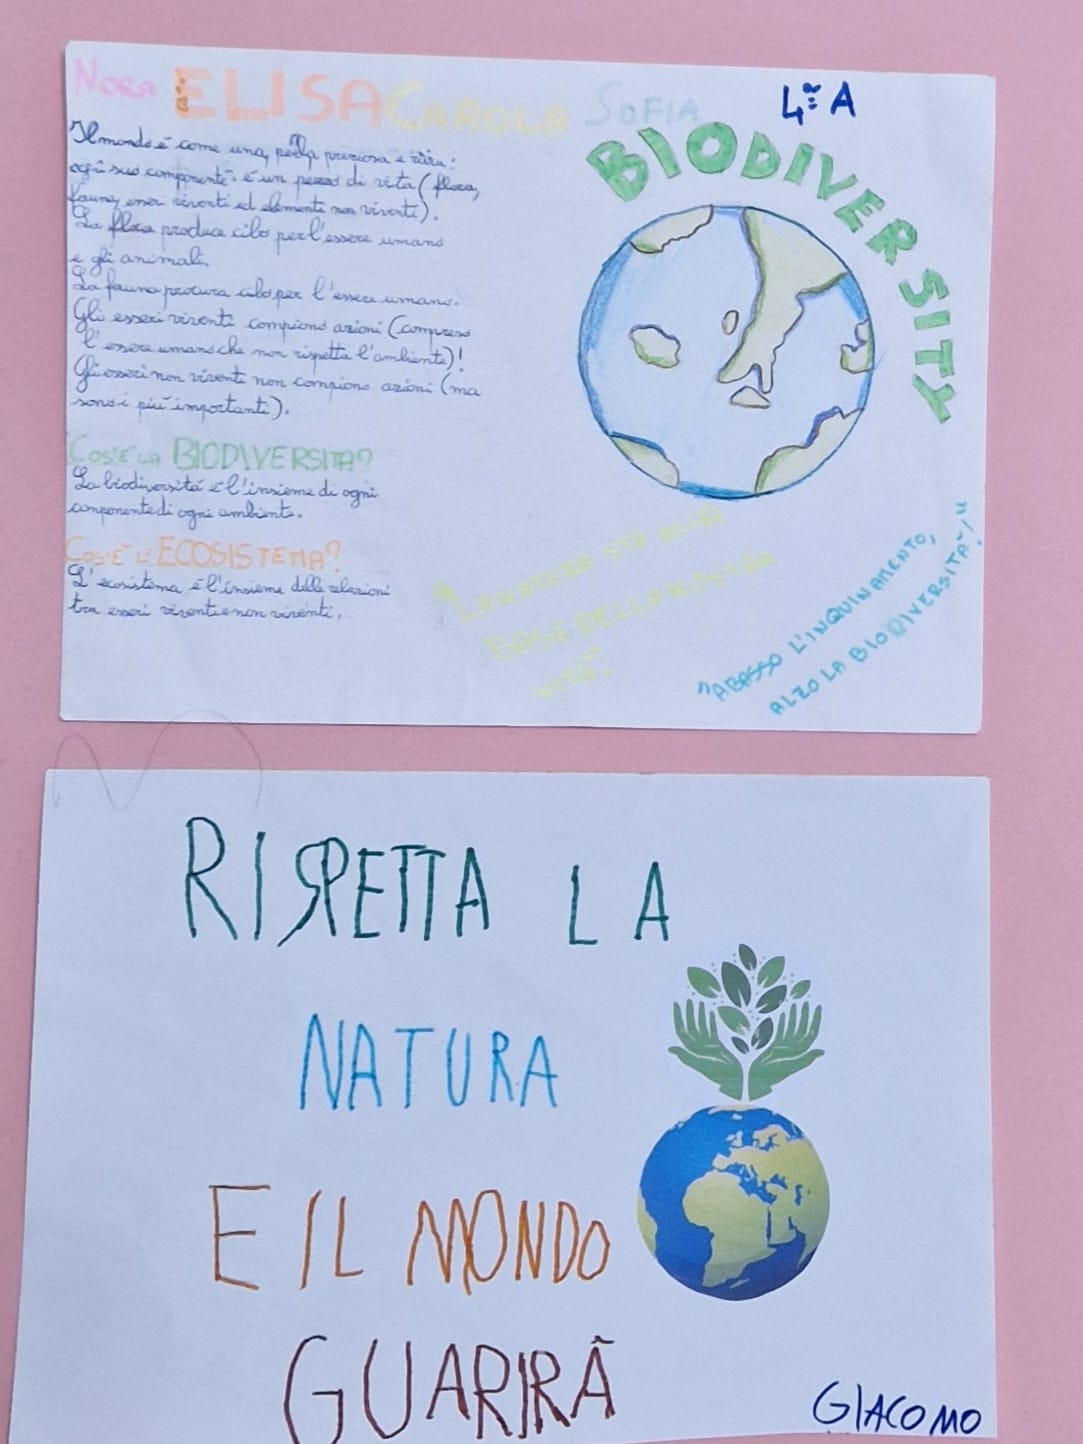 NORA ELISA CAROLA SOFIA 4ª A
Il mondo è come una perla preziosa e rara:
ogni suo componente è un pezzo di vita (flora,
fauna, esseri viventi ed elementi non viventi).
La flora produce cibo per l'essere umano
e gli animali.
La fauna procura cibo per l'essere umano.
Gli esseri viventi compiono azioni (compreso
l'essere umano che non rispetta l'ambiente)!
Gli esseri non viventi non compiono azioni (ma
sono i più importanti).
COS'È LA BIODIVERSITÀ?
La biodiversità è l'insieme di ogni
componente di ogni ambiente.
COS'È L'ECOSISTEMA?
L'ecosistema è l'insieme delle relazioni
tra esseri viventi e non viventi.
BIODIVERSITY
"LA NATURA STA ALLA
BASE DELLA NOSTRA
VITA".
"ABASSO L'INQUINAMENTO,
ALZO LA BIODIVERSITÀ!"
RISPETTA LA
NATURA
E IL MONDO
GUARIRÀ
GIACOMO